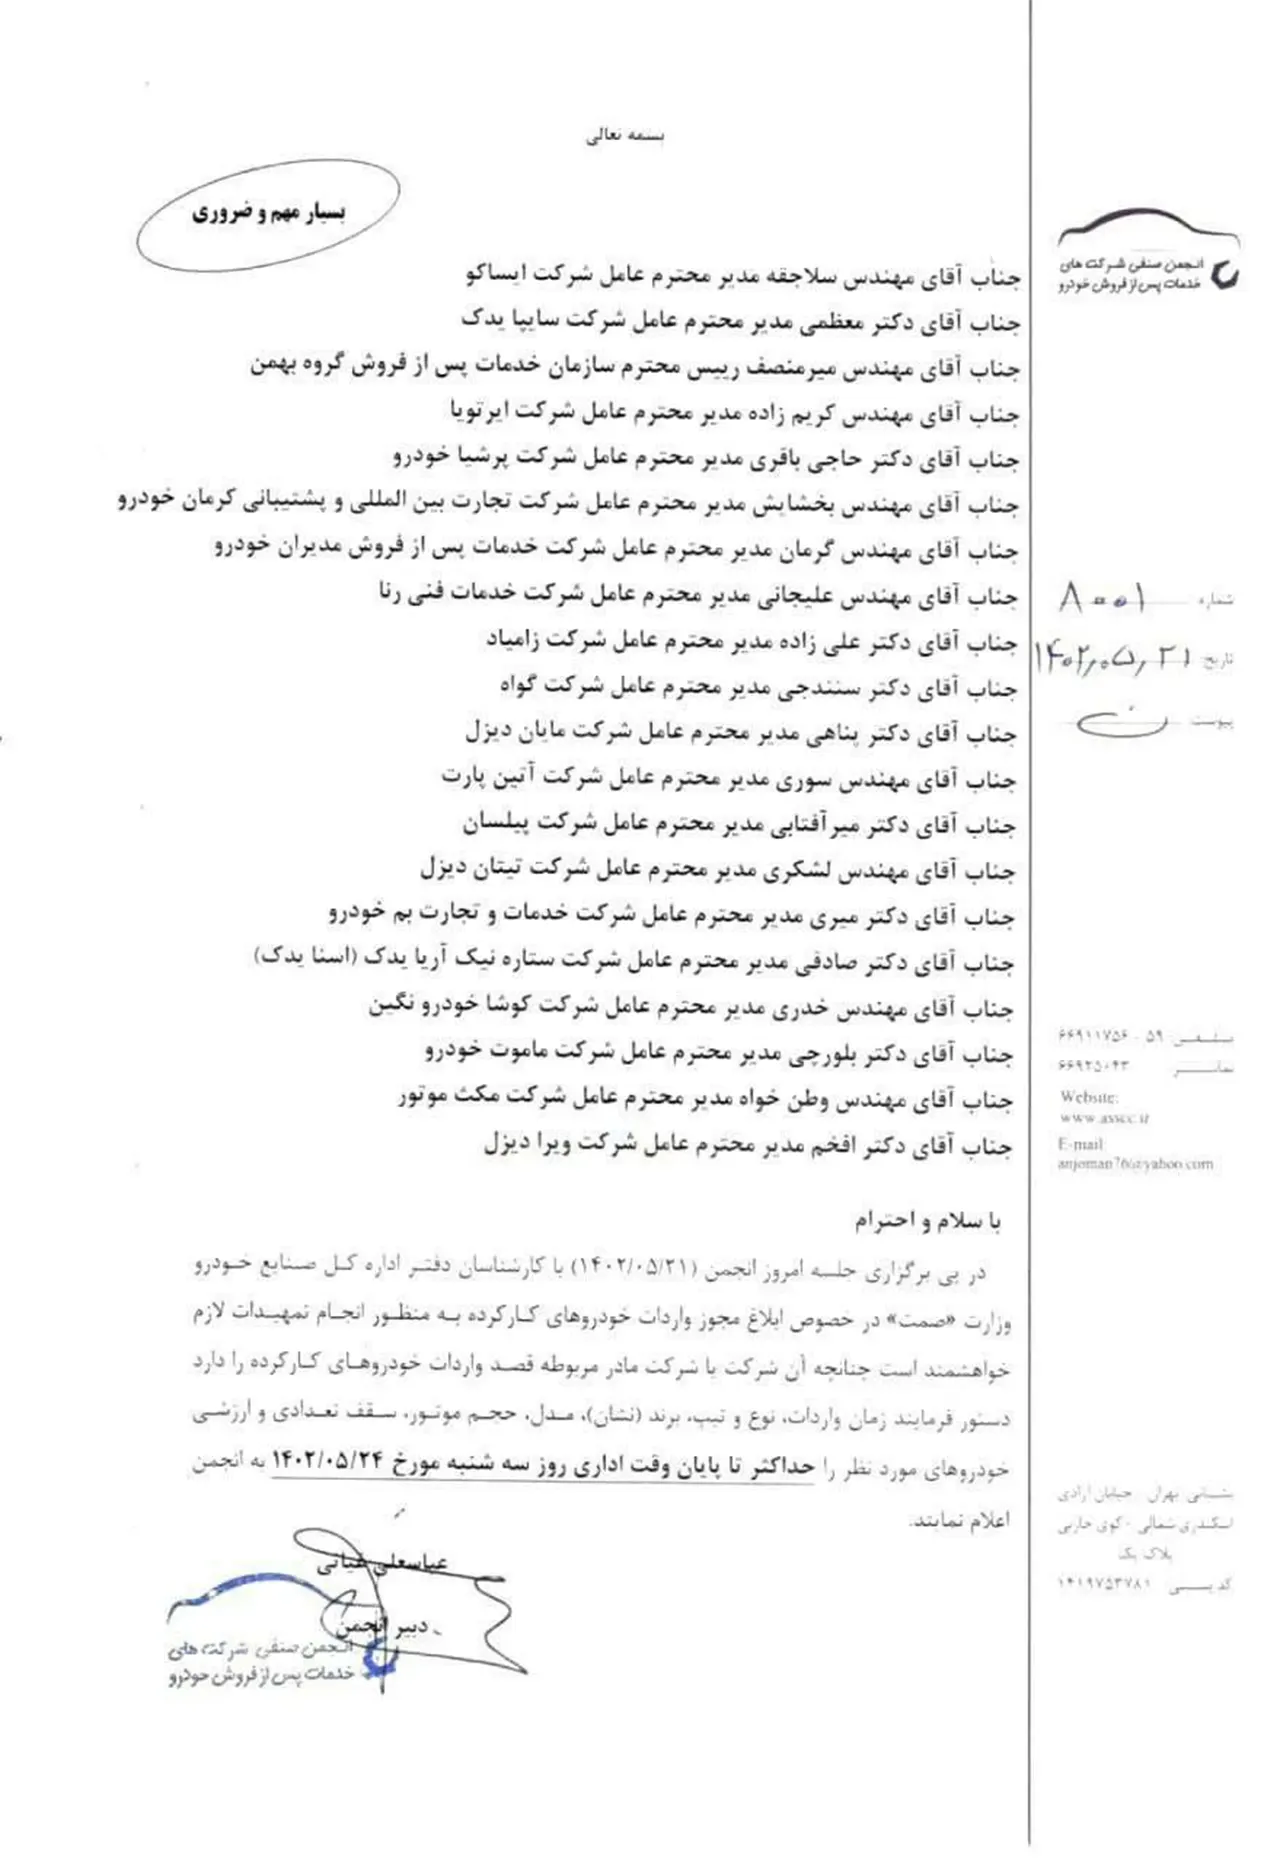 بسمه تعالی
بسیار مهم و ضروری
انجمن صنفی شرکت های
خدمات پس از فروش خودرو
جناب آقای مهندس سلاجقه مدیر محترم عامل شرکت ایساکو
جناب آقای دکتر معظمی مدیر محترم عامل شرکت سایپا یدک
جناب آقای مهندس میرمنصف رییس محترم سازمان خدمات پس از فروش گروه بهمن
جناب آقای مهندس کریم زاده مدیر محترم عامل شرکت ایرتویا
جناب آقای دکتر حاجی باقری مدیر محترم عامل شرکت پرشیا خودرو
جناب آقای مهندس بخشایش مدیر محترم عامل شرکت تجارت بین المللی و پشتیبانی کرمان خودرو
جناب آقای مهندس گرمان مدیر محترم عامل شرکت خدمات پس از فروش مدیران خودرو
جناب آقای مهندس علیجانی مدیر محترم عامل شرکت خدمات فنی رنا
جناب آقای دکتر علی زاده مدیر محترم عامل شرکت زامیاد
جناب آقای دکتر سنندجی مدیر محترم عامل شرکت گواه
جناب آقای دکتر پناهی مدیر محترم عامل شرکت مایان دیزل
جناب آقای مهندس سوری مدیر محترم عامل شرکت آتین پارت
جناب آقای دکتر میرآفتابی مدیر محترم عامل شرکت پیلسان
جناب آقای مهندس لشکری مدیر محترم عامل شرکت تیتان دیزل
جناب آقای دکتر میری مدیر محترم عامل شرکت خدمات و تجارت بم خودرو
جناب آقای دکتر صادقی مدیر محترم عامل شرکت ستاره نیک آریا یدک (اسنا یدک)
جناب آقای مهندس خدری مدیر محترم عامل شرکت کوشا خودرو نگین
جناب آقای دکتر بلورچی مدیر محترم عامل شرکت ماموت خودرو
جناب آقای مهندس وطن خواه مدیر محترم عامل شرکت مکث موتور
جناب آقای دکتر افخم مدیر محترم عامل شرکت ویرا دیزل
با سلام و احترام
در پی برگزاری جلسه امروز انجمن (۱۴۰۲/۰۵/۲۱) با کارشناسان دفتر اداره کل صنایع خودرو
وزارت «صمت» در خصوص ابلاغ مجوز واردات خودروهای کارکرده به منظور انجام تمهیدات لازم
خواهشمند است چنانچه آن شرکت یا شرکت مادر مربوطه قصد واردات خودروهای کارکرده را دارد
دستور فرمایند زمان واردات، نوع و تیپ، برند (نشان)، مدل، حجم موتور، سقف تعدادی و ارزشی
خودروهای مورد نظر را حداکثر تا پایان وقت اداری روز سه شنبه مورخ ۱۴۰۲/۰۵/۲۴ به انجمن
اعلام نمایند.
عباسعلی غیاثی
دبیر انجمن
انجمن صنفی شرکت های
خدمات پس از فروش خودرو
شماره ۸۰۰۱
تاریخ ۱۴۰۲,۰۵,۲۱
پیوست
تلفن ۵۹ - ۶۶۹۱۱۷۵۶
نمابر ۶۶۹۲۵۰۴۳
Website:
www.asscc.ir
E-mail:
anjoman76@yahoo.com
نشانی تهران خیابان آزادی
اسکندری شمالی - کوی
پلاک یک
کدپستی ۱۴۱۹۷۵۳۷۸۱